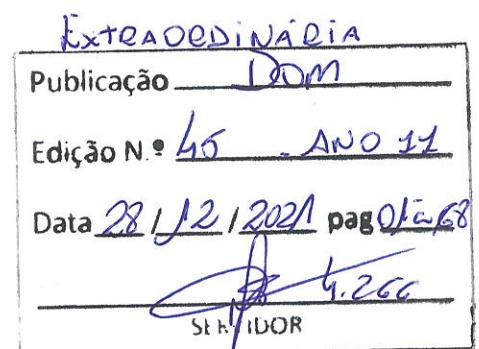 EXTRAORDINÁRIA
Publicação DOM
Edição N.º 45 - ANO 11
Data 28 / 12 / 2021 pag 01 a 68
4.266
SERVIDOR